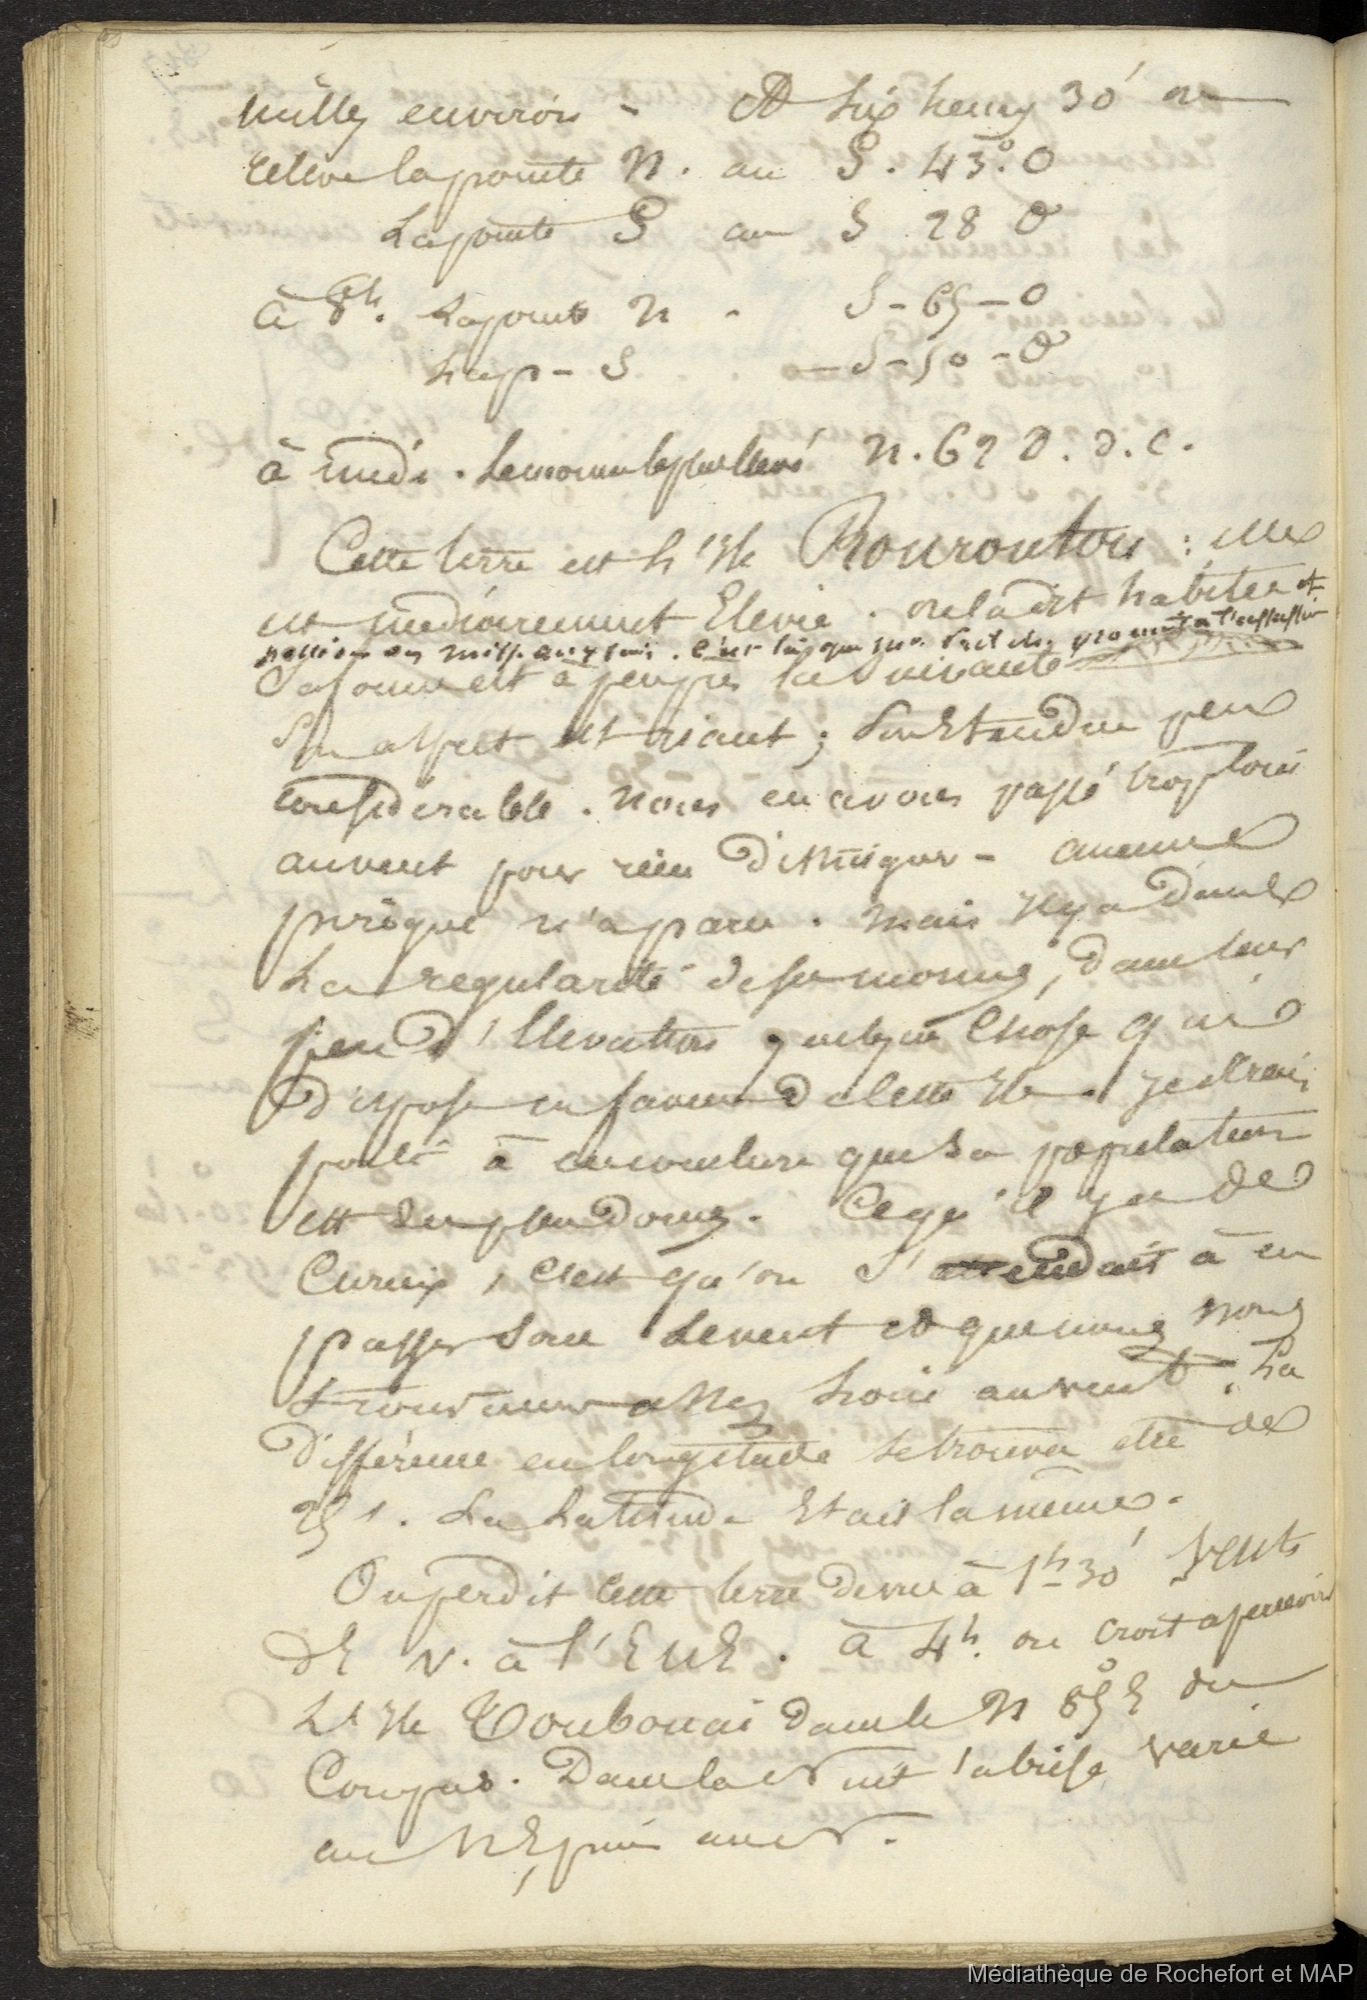 milles environ - A six heures 30' on
releve la pointe N. au S. 43.° O
La pointe S au S 28 O
à 8h. La pointe N - S - 65 - O
La p - S — S - 50 - O
à midi. Le morne le plus élevé N. 62 O. d. C.
Cette terre est L'Ile Rouroutou : elle
est médiocrement Elevée. on la dit habitée et
C'est là que
Sa forme est à peu près la suivante
Son aspect est riant ; Son Etendue peu
considérable. Nous en avons passé trop loin
au vent pour rien distinguer - aucune
pirogue n'a paru. Mais il y a dans
La régularité de ses mornes, dans leur
peu d'Elevation quelque chose qui
dispose en faveur de cette Ile. je serais
porté à en conclure que Sa population
est des plus douces. Ce qu'il y a de
Curieux, C'est qu'on S'attendait à en
passer Sous Le vent et que nous nous
trouvames assez Loin au vent. La
difference en longitude se trouva être de
25'. La Latitude Etait la même.
On perdit cette terre de vue à 1h 30' vents
dE N. à l'ENE. à 4h. on croit apercevoir
L'Ile Toubouai dans le N 85° E du
Compas. Dans la nuit la brise varie
au NE, puis au N.
Médiathèque de Rochefort et MAP